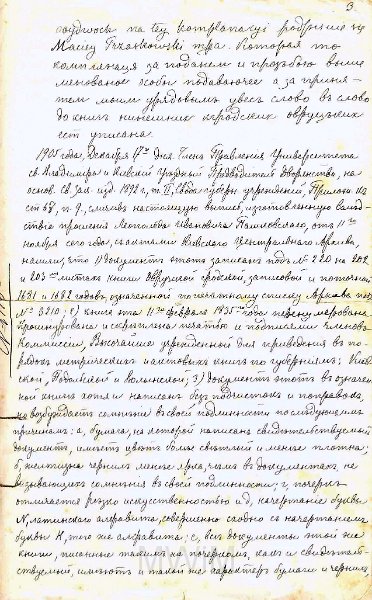 3.
подпись на тей контрактаси родзенне по
Мацей Рзонжковский тра. Которая то
компляцыя за поданем и прозбою выше
мененое особы подаваючее а за приня-
тем моим урядовым увесь слово в слово
до книг нинешних кгродских овруцких
ест уписана.
1905 года, Декабря 4го дня. Член Правления Университета
св. Владимира и Киевский Уездный Предводитель Дворянства, на
основ. св. зак. изд. 1892 г., т. II, Свода губерн. учреждений, Прилож. к
ст. 68, п. 9, сличив настоящую выпись, изготовленную вслед-
ствие прошения Леопольда Ивановича Павловского, от 11го
ноября сего года, с актами Киевского Центрального Архива,
нашли, что 1) документ этот записан под № 220 на 202
и 203 листах книги Овруцкой гродской, записовой и поточной
1681 и 1682 годов, означенной по печатному списку Архива под
№ 3210; 2) книга эта 11го февраля 1835 года перенумерована,
прошнурована и скреплена печатью и подписями Членов
Комиссии, Высочайше учрежденной для приведения в по-
рядок метрических и актовых книг по губерниям: Киев-
ской, Подольской и Волынской; 3) документ этот в означен-
ной книге хотя и написан без подчисток и поправок,
но возбуждает сомнение в своей подлинности по следующим
причинам: а, бумага, на которой написан свидетельствуемый
документ, имеет цвет более светлый и менее плотна;
б, желтизна чернил менее ярка, чем в документах, не
вызывающих сомнения в своей подлинности; г, почерк
отличается резко искусственностью и д, начертание буквы
N, латинского алфавита, совершенно сходно с начертанием
буквы К, того же алфавита; е, все документы этой же
книги, писанные таким же почерком, каким и свидетель-
ствуемый, имеют такой же характер бумаги и чернил,